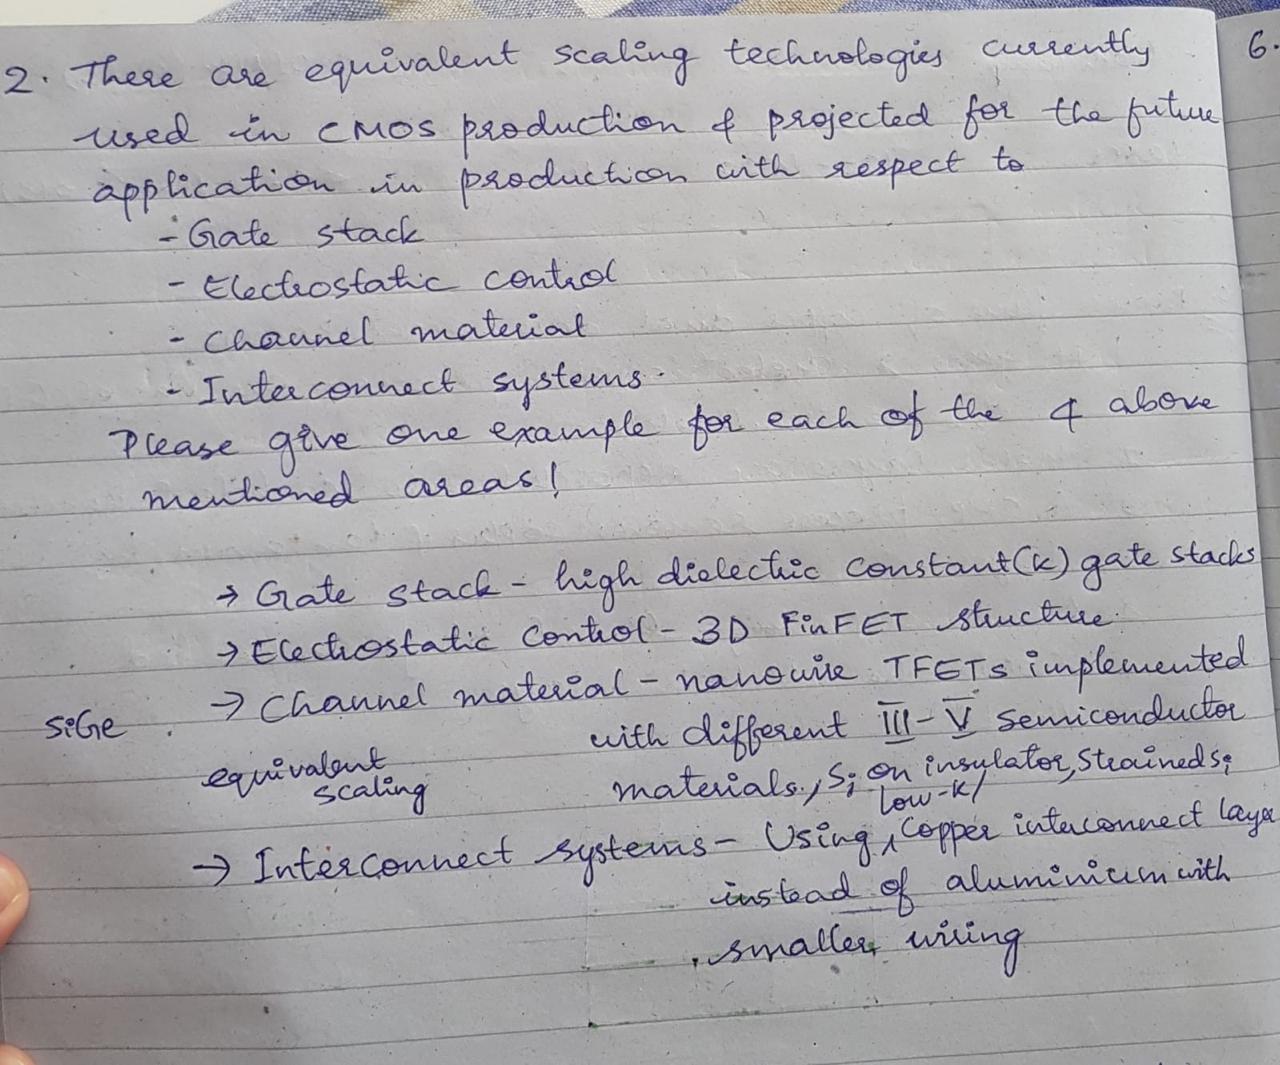 2. There are equivalent scaling technologies currently
used in CMOS production & projected for the future
application in production with respect to
- Gate stack
- Electrostatic control
- Channel material
- Interconnect systems.
Please give one example for each of the 4 above
mentioned areas!
→ Gate stack - high dielectric constant(k) gate stacks
→ Electrostatic Control - 3D FinFET structure.
→ Channel material - nanowire TFETs implemented
with different III-V semiconductor
materials., Si on insulator, Strained Si
SiGe
equivalent
scaling
low-k/
→ Interconnect systems - Using copper interconnect layer
instead of aluminium with
smaller wiring
6.